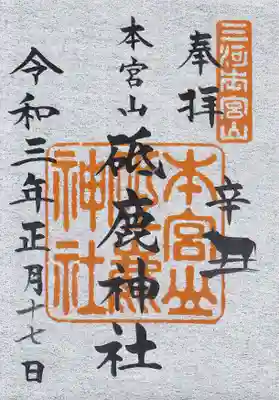 三河本宮山
奉拝
辛丑
本宮山
砥鹿神社
本宮山
砥鹿神社
令和三年正月十七日